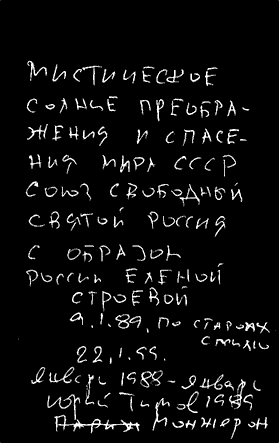 МИСТИЧЕСКОЕ
СОЛНЦЕ ПРЕОБРА-
ЖЕНИЯ И СПАСЕ-
НИЯ МИРА СССР
СОЮЗ СВОБОДНЫЙ
СВЯТОЙ РОССИЯ
С ОБРАЗОМ
РОССИИ ЕЛЕНОЙ
СТРОЕВОЙ
9.1.89. ПО СТАРОМУ
СТИЛЮ
22.1.
Январь 1988-Январь
Юрий Титов 1989
Париж Монжерон